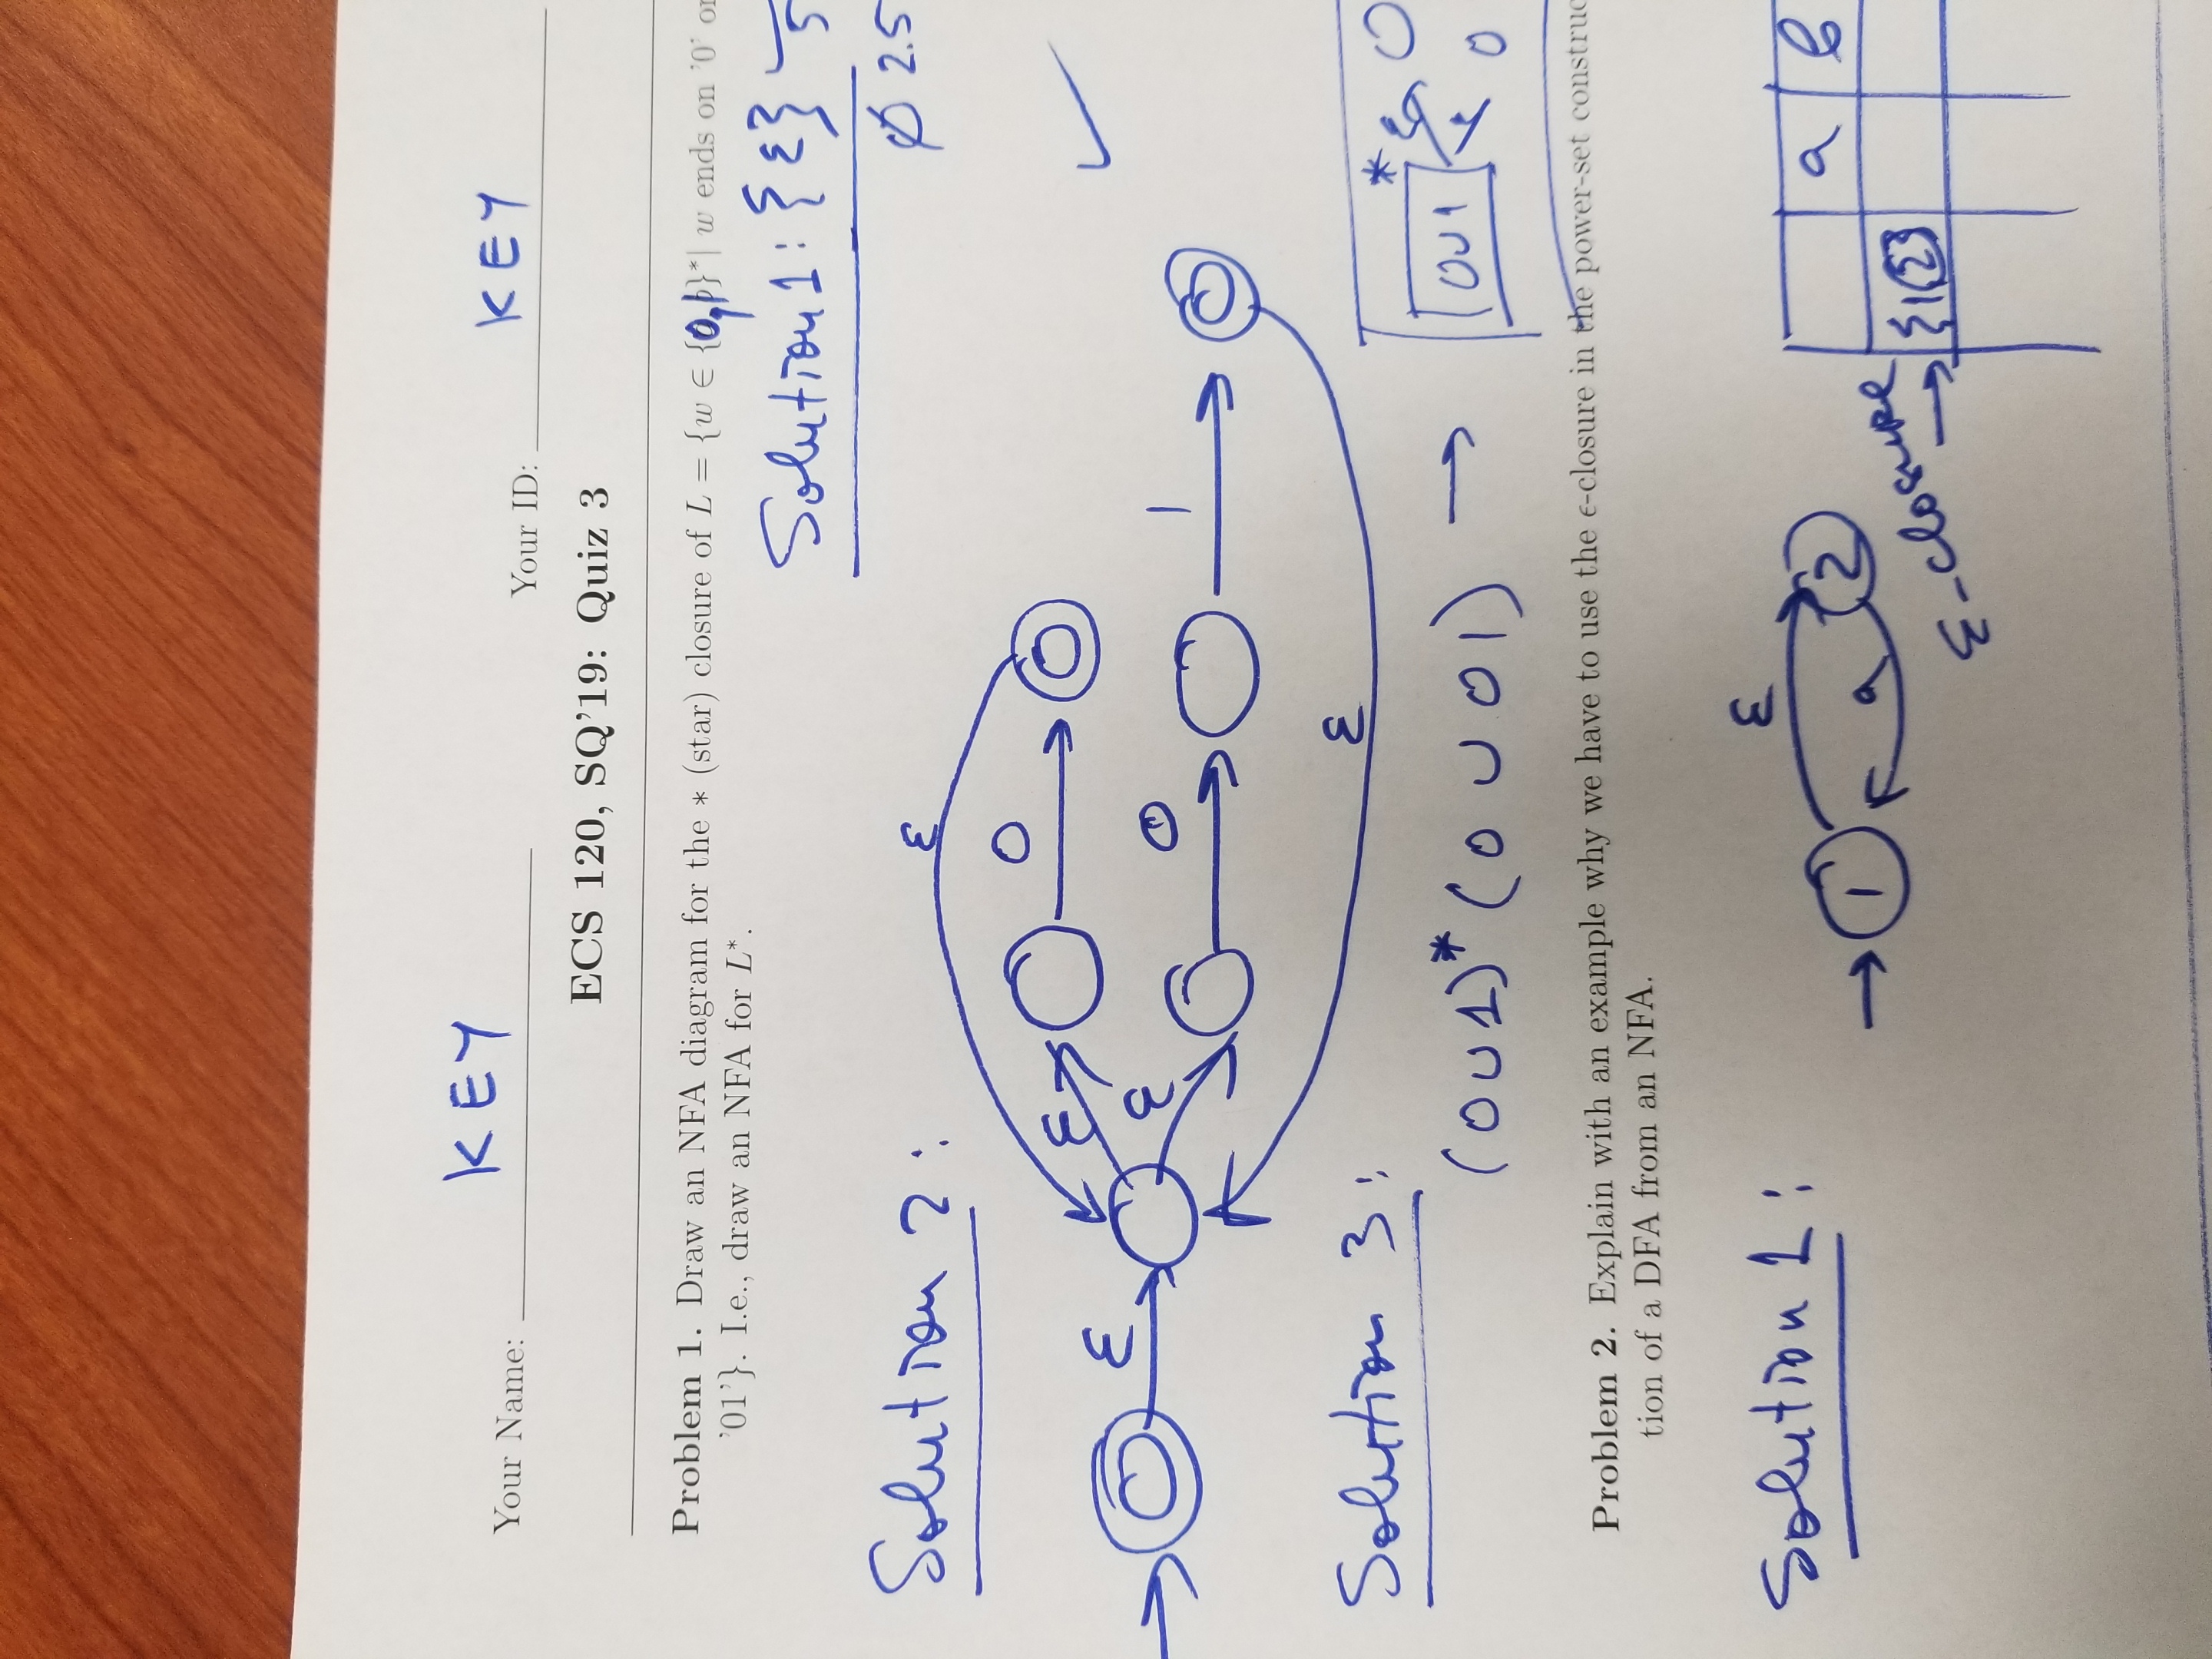 KEY KEY
Your Name: Your ID:
ECS 120, SQ'19: Quiz 3
Problem 1. Draw an NFA diagram for the * (star) closure of L = {w ∈ {0,1}*| w ends on '0' or
'01'}. I.e., draw an NFA for L*.
Solution 1: {ε} ✓ 5
∅ 2.5
Solution 2:
ε
ε 0
ε ε 0 1
ε
✓
Solution 3:
(0∪1)* (0 ∪ 01) →
0∪1 * ε 0
0
Problem 2. Explain with an example why we have to use the ϵ-closure in the power-set construc
tion of a DFA from an NFA.
Solution 1:
ε
1 2
a
a b
ε-closure → {1,2}